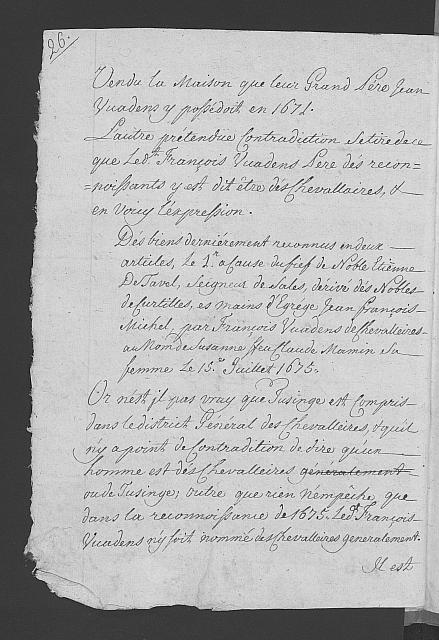 26.
Vendu la Maison que leur Grand Pére Jean
Vuadens y possédoit en 1671.
Lautre prétendue Contradiction se tire de ce
que Led.t François Vuadens Pere dés recon=
=noissants y est dit être dés Chevallaires, &
en voicy l'éxpression.
Dés biens derniérement reconnus en deux
articles, le 1.r a Cause du fief de Noble Etiénne
De Tavel, Seigneur de Sales, dérivé dés Nobles
de Curtilles, es mains d'Egrége Jean François
Michel, par François Vuadens de Chevalleires
au Nom de Susanne ffeu Claude Mamin Sa
femme Le 15.e Juillet 1675.
Or nést jl pas vray que Tusinge est Compris
dans le district Général des Chevalleires, & qu'il
n'y a point de Contradition de dire qu'un
homme est dés Chevalleires généralement
ou de Tusinge; outre que rien n'empêche que
dans la reconnoissance de 1675. Led.t François
Vuadens n'y soit nommé des Chevalleires generalement.
Jl est